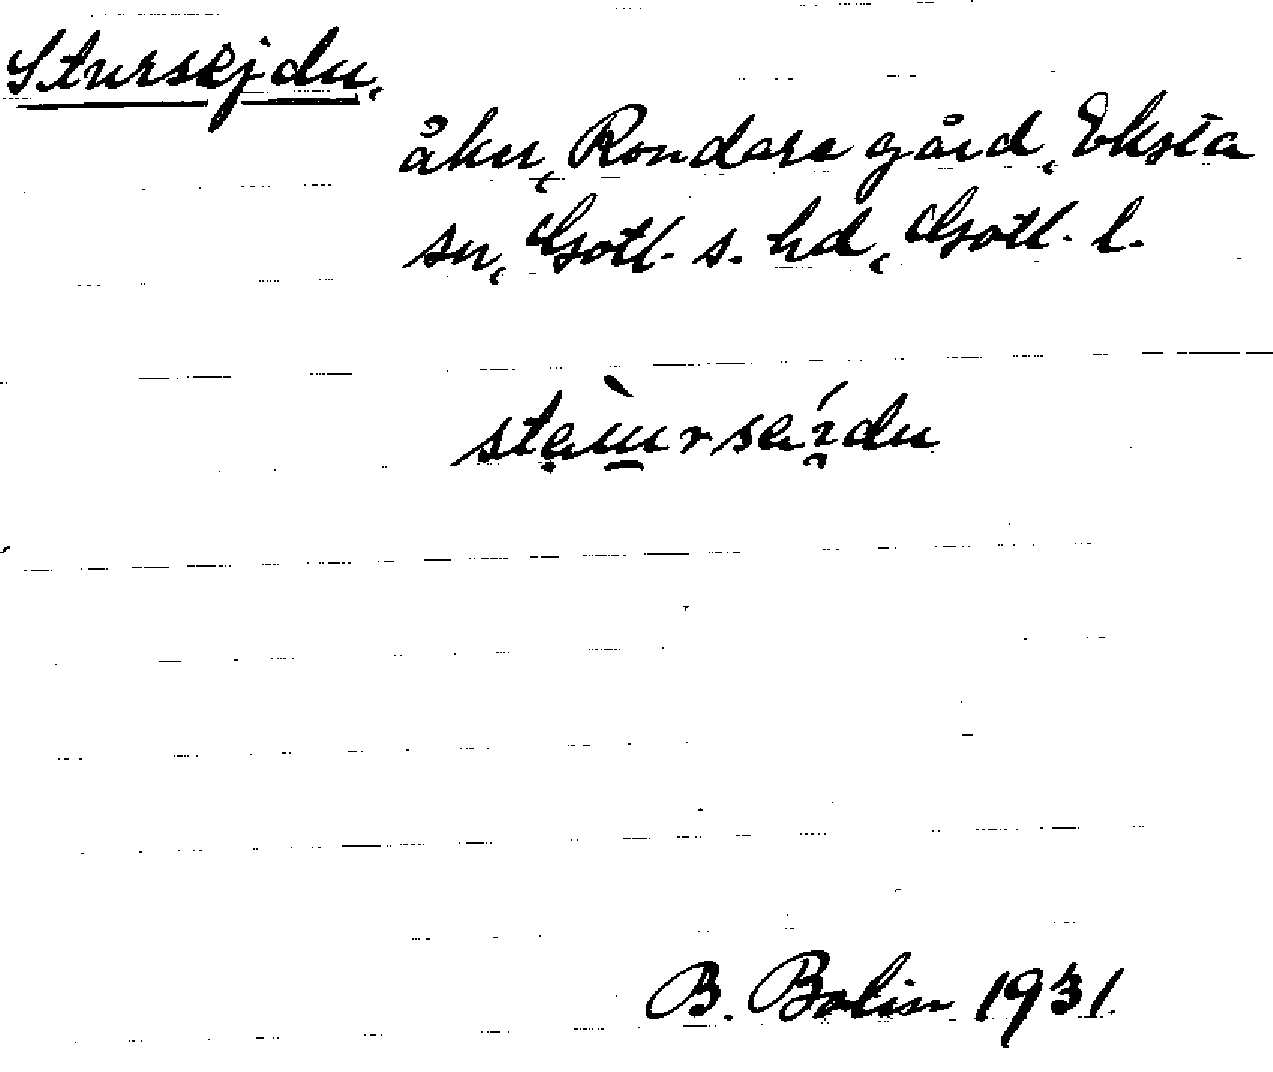 Stursejdu,
åker, Rondarve gård, Eksta
sn, Gotl. s. hd, Gotl. l.
B. Bolin 1931